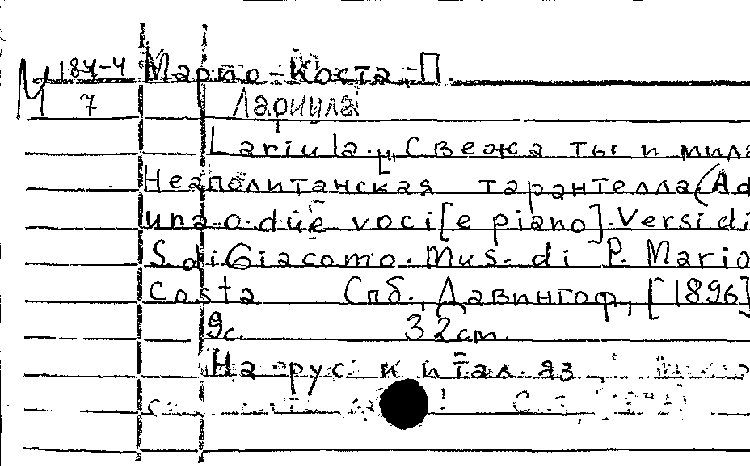 М 184-4 Марио-Коста П.
7 Лариула
Lariula. „Свежа ты и мила
Неаполитанская тарантелла (Ad
una o due voci [e piano]. Versi di
S. di Giacomo. Mus. di P. Mario
Costa Спб., Давингоф, [1896]
9с. 32 cm.
На рус. и итал. яз.